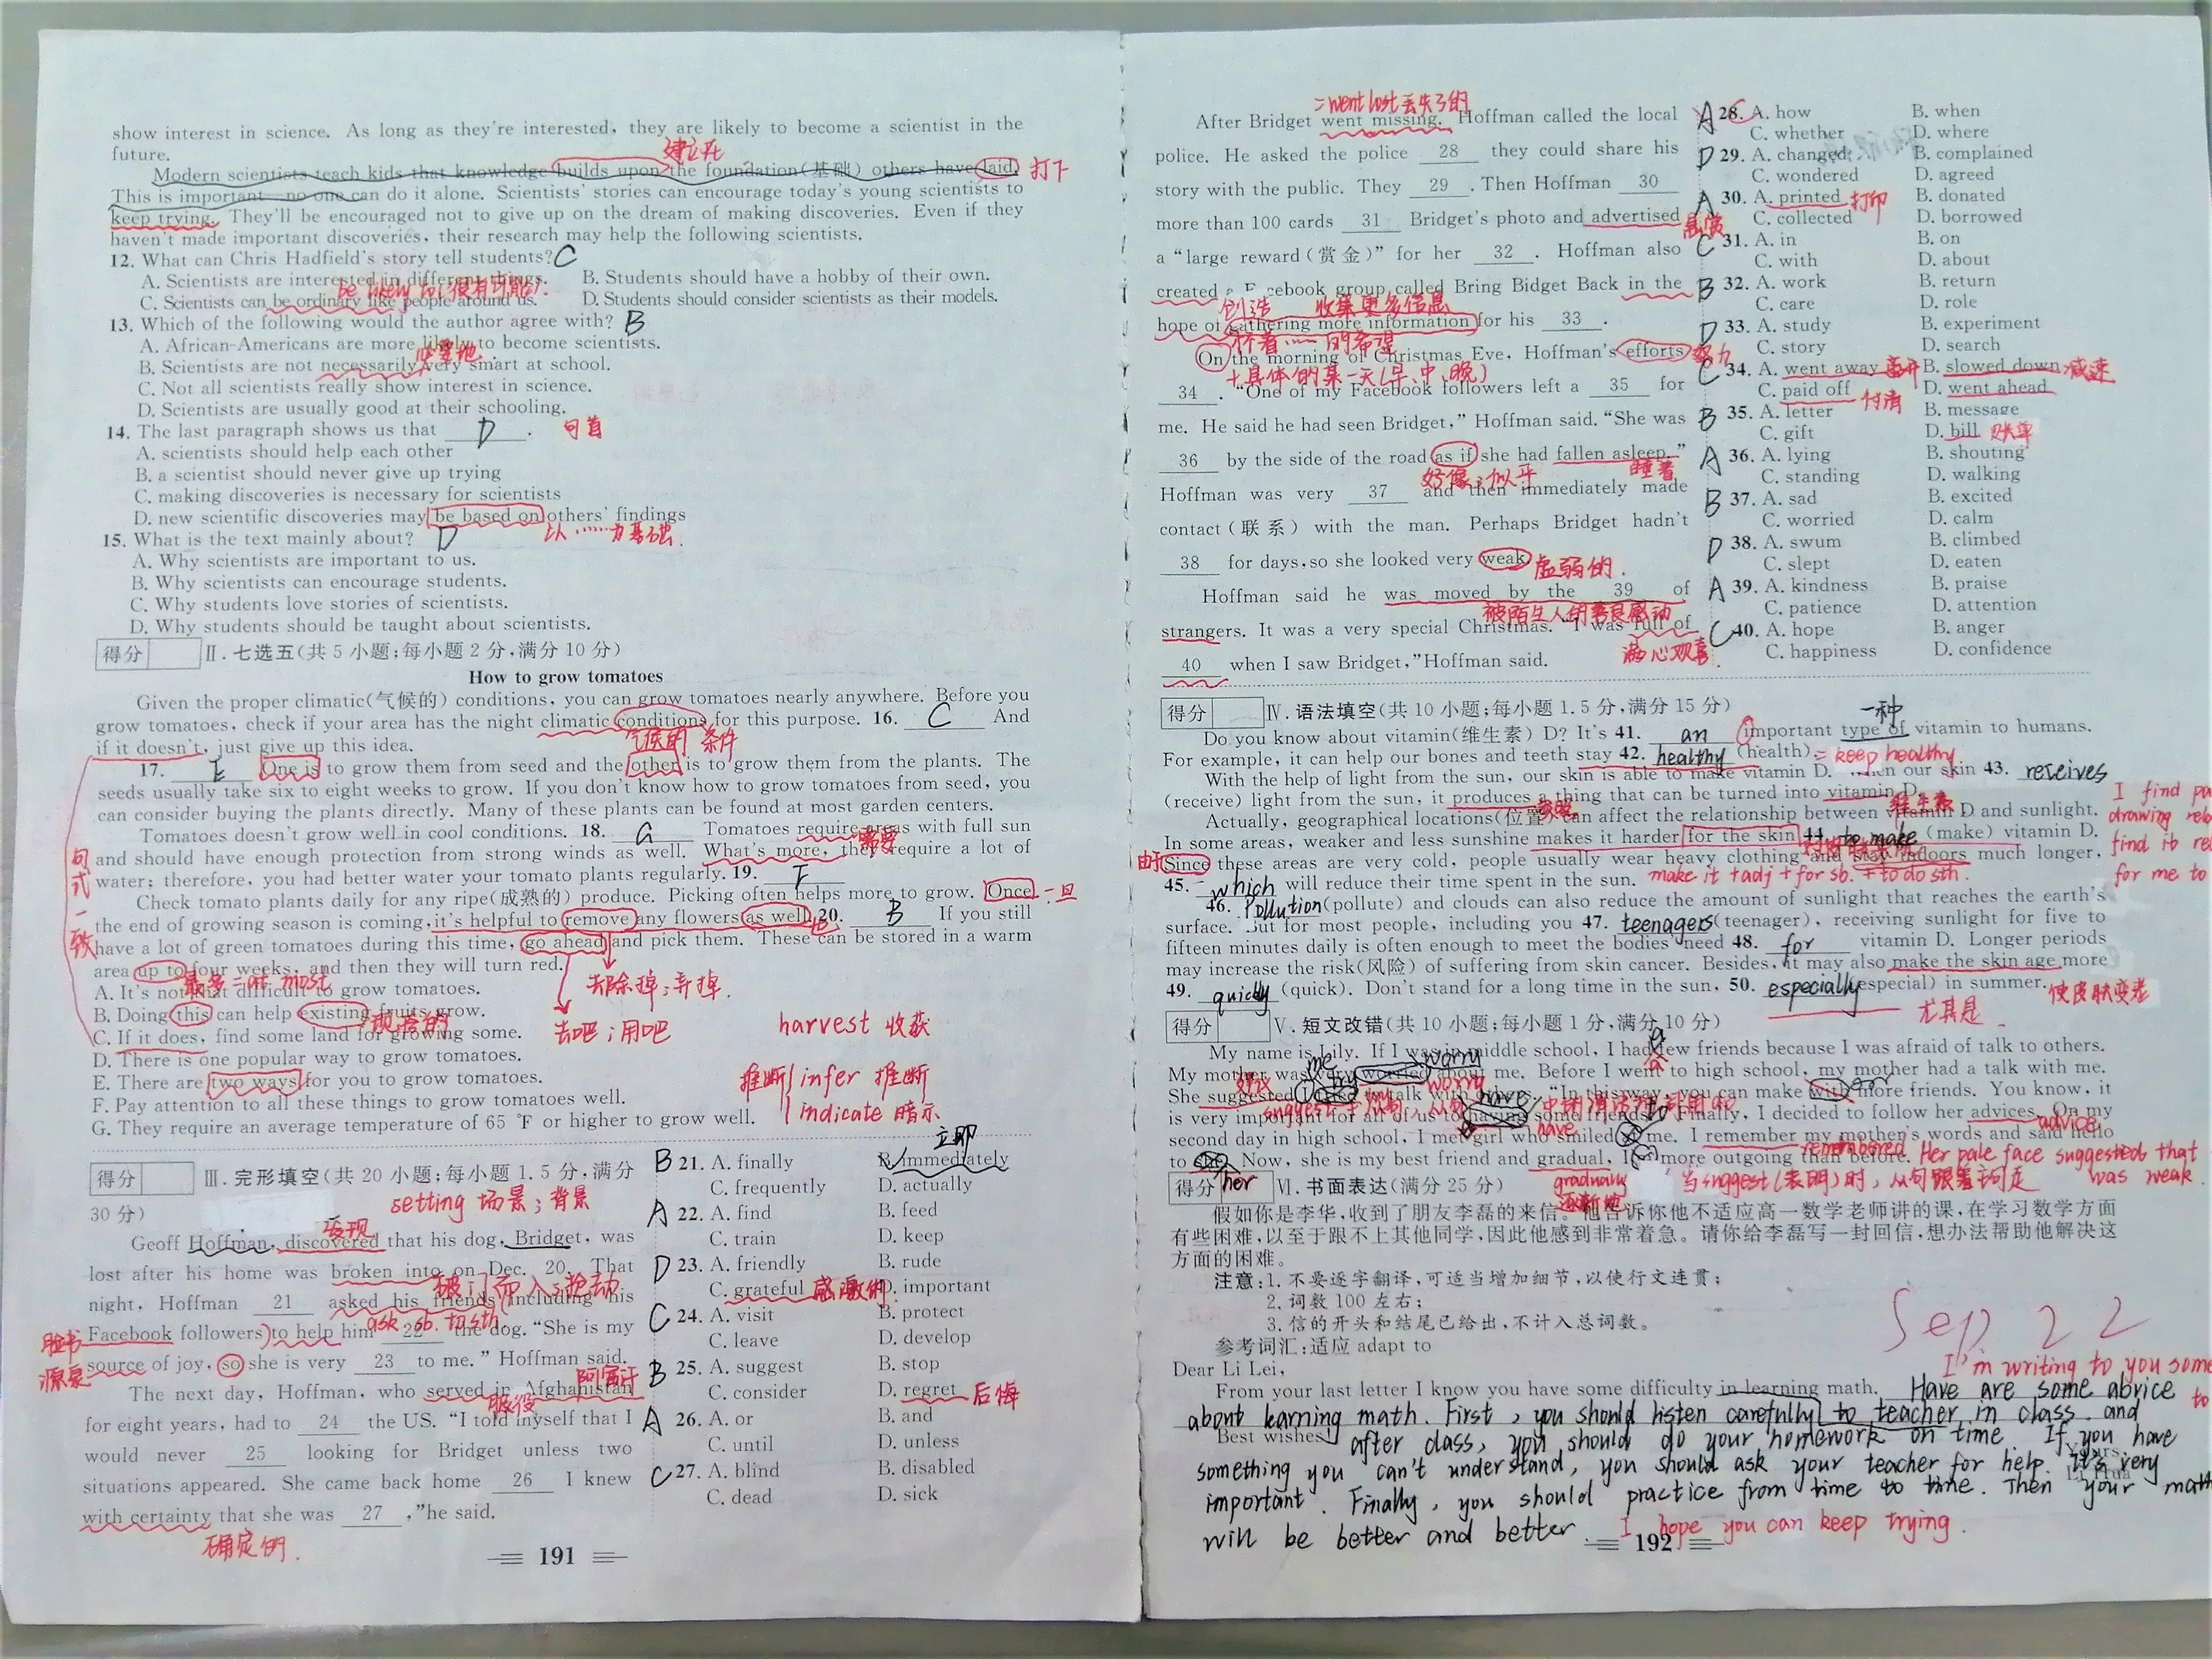 show interest in science. As long as they're interested, they are likely to become a scientist in the
future.
建立在
Modern scientists teach kids that knowledge builds upon the foundation(基础) others have laid. 打下
This is important—no one can do it alone. Scientists' stories can encourage today's young scientists to
keep trying. They'll be encouraged not to give up on the dream of making discoveries. Even if they
haven't made important discoveries, their research may help the following scientists.
12. What can Chris Hadfield's story tell students? C
A. Scientists are interested in different things. B. Students should have a hobby of their own.
be likely to(很有可能).
C. Scientists can be ordinary like people around us. D. Students should consider scientists as their models.
13. Which of the following would the author agree with? B
A. African-Americans are more likely to become scientists.
必要地
B. Scientists are not necessarily very smart at school.
C. Not all scientists really show interest in science.
D. Scientists are usually good at their schooling.
14. The last paragraph shows us that D . 句首
A. scientists should help each other
B. a scientist should never give up trying
C. making discoveries is necessary for scientists
D. new scientific discoveries may be based on others' findings
以……为基础.
15. What is the text mainly about? D
A. Why scientists are important to us.
B. Why scientists can encourage students.
C. Why students love stories of scientists.
D. Why students should be taught about scientists.
得分 Ⅱ. 七选五(共 5 小题;每小题 2 分,满分 10 分)
How to grow tomatoes
Given the proper climatic(气候的) conditions, you can grow tomatoes nearly anywhere. Before you
grow tomatoes, check if your area has the night climatic conditions for this purpose. 16. C And
气候的 条件
if it doesn't, just give up this idea.
17. E One is to grow them from seed and the other is to grow them from the plants. The
seeds usually take six to eight weeks to grow. If you don't know how to grow tomatoes from seed, you
can consider buying the plants directly. Many of these plants can be found at most garden centers.
Tomatoes doesn't grow well in cool conditions. 18. G Tomatoes require areas with full sun
需要
and should have enough protection from strong winds as well. What's more, they require a lot of
water; therefore, you had better water your tomato plants regularly. 19. F
句式一致
Check tomato plants daily for any ripe(成熟的) produce. Picking often helps more to grow. Once 一旦
the end of growing season is coming, it's helpful to remove any flowers as well. 20. B If you still
也
have a lot of green tomatoes during this time, go ahead and pick them. These can be stored in a warm
area up to four weeks, and then they will turn red.
最多=at most
去除掉;弃掉.
A. It's not that difficult to grow tomatoes.
B. Doing this can help existing fruits grow.
现存的
去吧;用吧
harvest 收获
C. If it does, find some land for growing some.
D. There is one popular way to grow tomatoes.
E. There are two ways for you to grow tomatoes.
推断 infer 推断
indicate 暗示
F. Pay attention to all these things to grow tomatoes well.
G. They require an average temperature of 65 ℉ or higher to grow well.
得分 Ⅲ. 完形填空(共 20 小题;每小题 1.5 分,满分
30 分)
setting 场景;背景
发现
Geoff Hoffman, discovered that his dog, Bridget, was
lost after his home was broken into on Dec. 20. That
破门而入;抢劫
night, Hoffman 21 asked his friends (including his
ask sb. to sth.
脸书
Facebook followers) to help him 22 the dog. "She is my
源泉
source of joy, so she is very 23 to me." Hoffman said.
阿富汗
The next day, Hoffman, who served in Afghanistan
服役
for eight years, had to 24 the US. "I told myself that I
would never 25 looking for Bridget unless two
situations appeared. She came back home 26 I knew
with certainty that she was 27 ,"he said.
确定的.
立即
B 21. A. finally B. immediately
C. frequently D. actually
A 22. A. find B. feed
C. train D. keep
D 23. A. friendly B. rude
C. grateful 感激的 D. important
C 24. A. visit B. protect
C. leave D. develop
B 25. A. suggest B. stop
C. consider D. regret 后悔
A 26. A. or B. and
C. until D. unless
C 27. A. blind B. disabled
C. dead D. sick
191
=went lost 丢失了的
After Bridget went missing. Hoffman called the local
police. He asked the police 28 they could share his
story with the public. They 29 . Then Hoffman 30
more than 100 cards 31 Bridget's photo and advertised
悬赏
a "large reward(赏金)" for her 32 . Hoffman also
created a Facebook group called Bring Bidget Back in the
创造 收集更多信息
hope of gathering more information for his 33 .
怀着……的希望
On the morning of Christmas Eve, Hoffman's efforts 努力
+具体的某一天(早、中、晚)
34 . "One of my Facebook followers left a 35 for
me. He said he had seen Bridget," Hoffman said. "She was
36 by the side of the road as if she had fallen asleep."
好像;似乎 睡着
Hoffman was very 37 and then immediately made
contact(联系) with the man. Perhaps Bridget hadn't
38 for days, so she looked very weak. 虚弱的.
Hoffman said he was moved by the 39 of
被陌生人的善良感动
strangers. It was a very special Christmas. "I was full of
满心欢喜.
40 when I saw Bridget,"Hoffman said.
28. A. how B. when
C. whether D. where
D 29. A. changed B. complained
C. wondered D. agreed
A 30. A. printed 打印 B. donated
C. collected D. borrowed
C 31. A. in B. on
C. with D. about
B 32. A. work B. return
C. care D. role
D 33. A. study B. experiment
C. story D. search
C 34. A. went away 离开 B. slowed down 减速
C. paid off 付清 D. went ahead
B 35. A. letter B. message
C. gift D. bill 账单
A 36. A. lying B. shouting
C. standing D. walking
B 37. A. sad B. excited
C. worried D. calm
D 38. A. swum B. climbed
C. slept D. eaten
A 39. A. kindness B. praise
C. patience D. attention
C 40. A. hope B. anger
C. happiness D. confidence
得分 Ⅳ. 语法填空(共 10 小题;每小题 1.5 分,满分 15 分)
一种
Do you know about vitamin(维生素) D? It's 41. an important type of vitamin to humans.
For example, it can help our bones and teeth stay 42. healthy (health). = keep healthy
With the help of light from the sun, our skin is able to make vitamin D. When our skin 43. receives
(receive) light from the sun, it produces a thing that can be turned into vitamin D.
Actually, geographical locations(位置) can affect the relationship between vitamin D and sunlight.
In some areas, weaker and less sunshine makes it harder for the skin 44. to make (make) vitamin D.
由于
Since these areas are very cold, people usually wear heavy clothing and stay indoors much longer,
45. which will reduce their time spent in the sun. make it +adj +for sb. + to do sth.
46. Pollution (pollute) and clouds can also reduce the amount of sunlight that reaches the earth's
surface. But for most people, including you 47. teenagers (teenager), receiving sunlight for five to
fifteen minutes daily is often enough to meet the bodies' need 48. for vitamin D. Longer periods
may increase the risk(风险) of suffering from skin cancer. Besides, it may also make the skin age more
49. quickly (quick). Don't stand for a long time in the sun, 50. especially (especial) in summer. 使皮肤变老
尤其是.
得分 Ⅴ. 短文改错(共 10 小题;每小题 1 分,满分 10 分)
My name is Lily. If I was in middle school, I had few friends because I was afraid of talk to others.
My mother was very worried about me. Before I went to high school, my mother had a talk with me.
She suggested talk with others. "In this way, you can make with more friends. You know, it
is very important for all of us having some friends." Finally, I decided to follow her advices. On my
second day in high school, I met girl who smiled at me. I remember my mother's words and said hello
to she. Now, she is my best friend and gradual, I more outgoing than before.
her gradually 逐渐地
remembered. Her pale face suggested that
当suggest(表明)时,从句跟着 was weak.
得分 Ⅵ. 书面表达(满分 25 分)
假如你是李华,收到了朋友李磊的来信。他告诉你他不适应高一数学老师讲的课,在学习数学方面
有些困难,以至于跟不上其他同学,因此他感到非常着急。请你给李磊写一封回信,想办法帮助他解决这
方面的困难。
注意:1. 不要逐字翻译,可适当增加细节,以使行文连贯;
2. 词数 100 左右;
3. 信的开头和结尾已给出,不计入总词数。
参考词汇:适应 adapt to
Sep 22
Dear Li Lei,
I'm writing to you some
From your last letter I know you have some difficulty in learning math. Have are some abvice
about learning math. First, you should listen carefully to teacher in class. and
Best wishes!
after class, you should do your homework on time If you have
something you can't understand, you should ask your teacher for help. It's very
important. Finally, you should practice from time to time. Then your math
will be better and better. I hope you can keep trying.
192